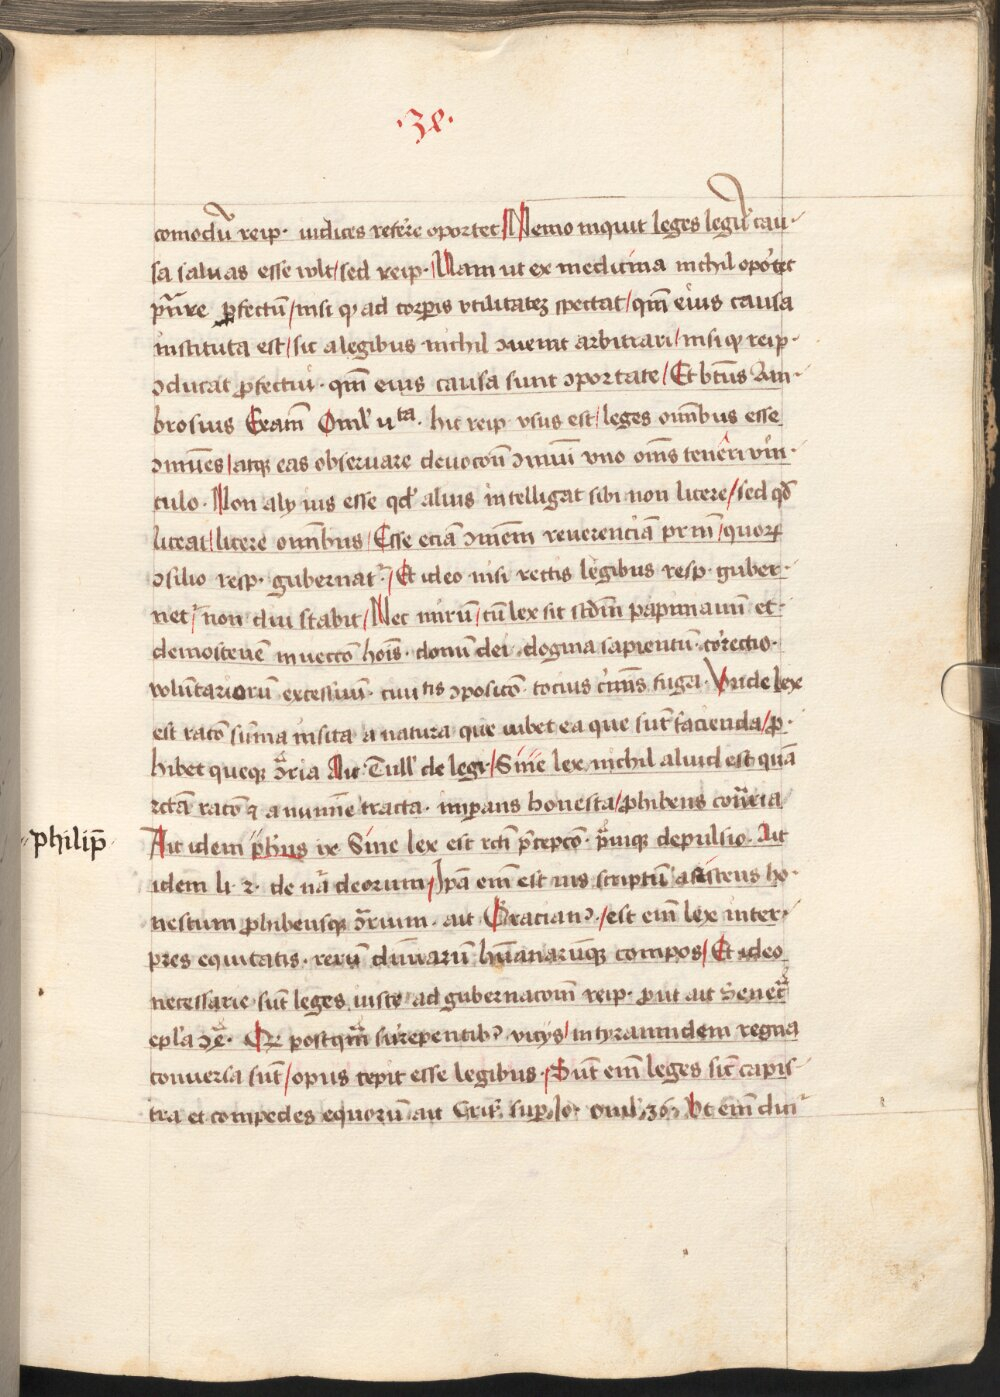 ·38·
comodū reip· iudices referre oportet Nemo inquit leges legū cau-
sa saluas esse vult/ sed reip· Nam ut ex medicina nichil oportet
ꝓfectū/ nisi qꝫ ad corpis vtilitatez spectat/ qm̄ eius causa
instituta est/ sic a legibus nichil ꝯuenit arbitrari/ nisi qꝫ reip·
ꝯducat ꝓfectui· qm̄ eius causa sunt ꝯportate/ Et btūs Am-
brosius Exam̄ Oml' vta· hic reip vsus est/ leges om̄ibus esse
ꝯmūes/ atqꝫ eas obseruare deuocōn ꝯmuni vno om̄s teneri vin-
culo· Non alij ius esse qd' alius intelligat sibi non licere/ sed qd̄
liceat/ licere om̄ibus/ Esse eciā ꝯmem̄ reuerenciā quorꝝ
ꝯsilio resp· gubernat'·/ Et ideo nisi rectis legibus resp· guber-
net'/ non diu stabit/ Nec mirū/ cū lex sit scdm̄ papinianū et
demostenē inuectō hoīs· donū dei· dogma sapientū· correctio·
voluntariorū excessuū· ciuitis ꝯpositō· tocius crimīs fuga· Vnde lex
est ratō sūma insita a natura que iubet ea que sūt facienda/ ꝓ-
hibet queqꝫ ꝯtria Ait Tull' de legi·/ Sine lex nichil aliud est quā
rctā ratō ⁊ a numīe tracta· imp̱ans honesta/ ꝓhibens cont̄ria
philip̄
Ait idem ph'us ix Sine lex est rcti p̄cepcō· p̄uiqꝫ depulsio· Ait
idem li· 2· de nā deorum/ Ipā em̄ est ius scriptū asistens ho-
nestum ꝓhibensqꝫ ꝯrium· ait Gracian'·/ est em̄ lex inter-
pres equitatis· rerū diuinarū hūanarūqꝫ compos/ Et ideo
necessarie sūt leges iuste ad gubernacōm reip· ꝓut ait Senet'
ep'la Qꝫ postqm̄ surrepentibꝰ vicijs/ in tyrannidem regna
conuersa sūt/ opus cepit esse legibus·/ Sūt em̄ leges sic̄ capis-
tra et compedes equorū aut Cris' sup Io· omil' 36· Vt em̄ dūr